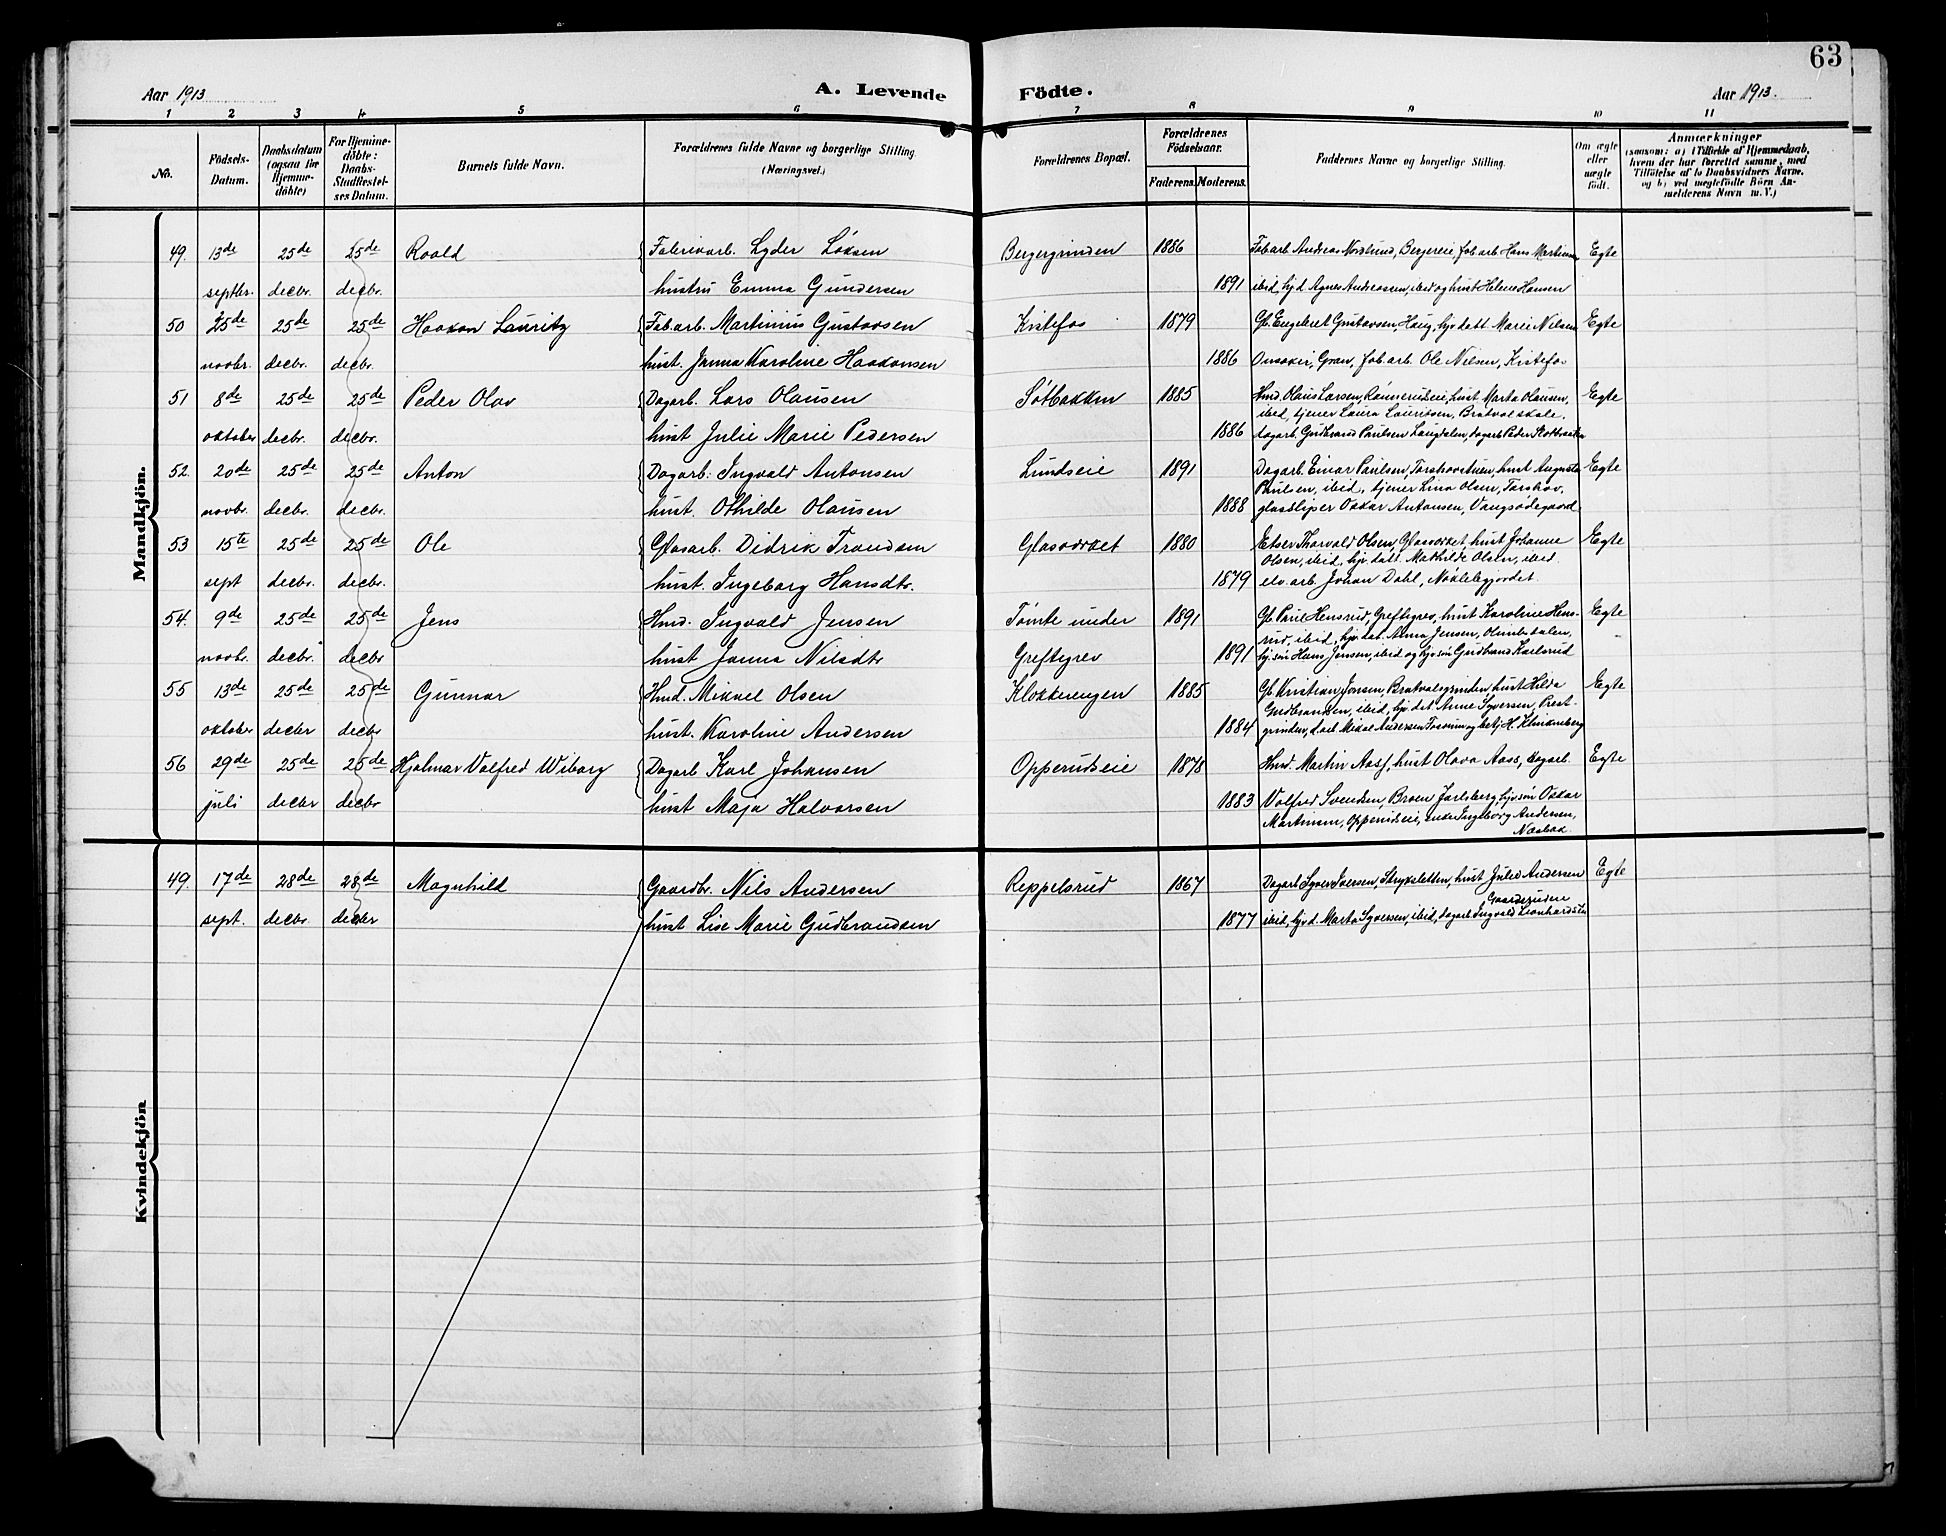 63
Aar 1913 A. Levende Födte. Aar 1913.
1 2 3 4 5 6 7 8 9 10 11
No. Födsels-Datum. Daabsdatum (ogsaa for Hjemmedöbte) For Hjemmedöbte: Daabs-Stadfæstelses Datum. Barnets fulde Navn. Forældrenes fulde Navne og borgerlige Stilling. (Næringsvei.) Forældrenes Bopæl. Forældrenes Födselsaar. Faderens. Moderens. Faddernes Navne og borgerlige Stilling. Om ægte eller uægte födt. Anmærkninger (saasom: a) i Tilfælde af Hjemmedaab, hvem der har forrettet samme, med Tilföielse af to Daabsvidners Navne, og b) ved uægtefödte Börn Anmelderens Navn m. V.)
Mandkjön.
49. 13de 25de 25de Roald Fabrikarb. Lyder Løksen Bergergrinden 1886 Fab arb. Andreas Nordlund, Bergereie, fob arb. Hans Martinsen Egte
septbr. decbr. decbr. hustru Emma Gundersen 1891 ibid, hj d. Agnes Andreassen, ibid og hust Helene Hansen
50 25de 25de 25de Haakon Lauritz Fab arb. Martinius Gustavsen Kistefos 1879 Gb. Engebret Gustavsen, Haug, hjv datt. Marie Nilsen Egte
novbr. decbr. decbr. hust. Janna Karoline Haakonsen 1886 Onsaker, Gran, fob arb. Ole Nilsen, Kistefos
51 8de 25de 25de Peder Olav Dagarb. Lars Olausen Søtbakken 1885 Hmd. Olaus Larsen, Rønnerudeie, hust Marta Olausen, Egte
ibid, tjener Laura Lauritsen, Bratvalskale,
oktober decbr. decbr. hust Julie Marie Pedersen 1886 dagarb. Gudbrand Paulsen Laugdalen, dagarb Peder
52. 20de 25de 25de Anton Dagarb. Ingvald Antonsen Lundseie 1891 Dagarb. Einar Paulsen, hust Augusta Egte
Paulsen, ibid, tjener Lina Olsen, Torshov,
novbr. decbr. decbr. hust. Othilde Olausen 1888 glassliper Oskar Antonsen, Vangsødegaard
53 15te 25de 25de Ole Glasarb. Didrik Trondsen Glasverket 1880 Etser Thorvald Olsen, Glassverket, hust Johanne Egte
Olsen, ibid, hjv. datt. Mathilde Olsen, ibid.
sept decbr. decbr. hust. Ingeborg Hansdtr. 1879 elv. arb. Johan Dahl, Nøklebygjordet
54. 9de 25de 25de Jens Hmd. Ingvald Jensen Tømte under 1891 Gb. Paul Hensrud, Greftegrev, hust Karoline Hens- Egte
rud, ibid, hjv. dat. Anna Jensen,
novbr. decbr. decbr hust Janna Nilsdtr Greftegrev 1891 hj. søn Hans Jensen, ibid og hjv søn Gudbrand Karlsrud
55 13de 25de 25de Gunnar Hmd. Mikael Olsen Klokkerengen 1885 Gb. Kristian Jonsen, Bratvalsgrinden hust Hilda Egte
Gudbrandsen, ibid, hjv. dat Anne Syversen, Prest-
oktober decbr decbr hust. Karoline Andersen 1884 grinden, d. arb. Mikal Andersen Fossum og betj. H. Klinkenberg
56 29de 25de 25de Hjalmar Valfred Wiborg Dagarb Karl Johansen Opperudeie 1878 Hmd. Martin Aass, hust Olava Aass, dagarb. Egte
juli decbr decbr hust Maja Halvorsen 1883 Valfred Svendsen, Broen Jarlsberg, hjv søn Oskar
Martinsen, Opperudeie, enke Ingeborg Andersen,
Næsbak.
Kvindekjön
49. 17de 28de 28de Magnhild Gaardbr. Nils Andersen Reppelsrud 1867 Dagarb Syver Iversen, Strykesletten, hust Julie Andersen Egte
sept. decbr. decbr hust Lise Marie Gudbrandsen 1877 ibid, hjv d. Marta Syversen, ibid, dagarb Ingvald